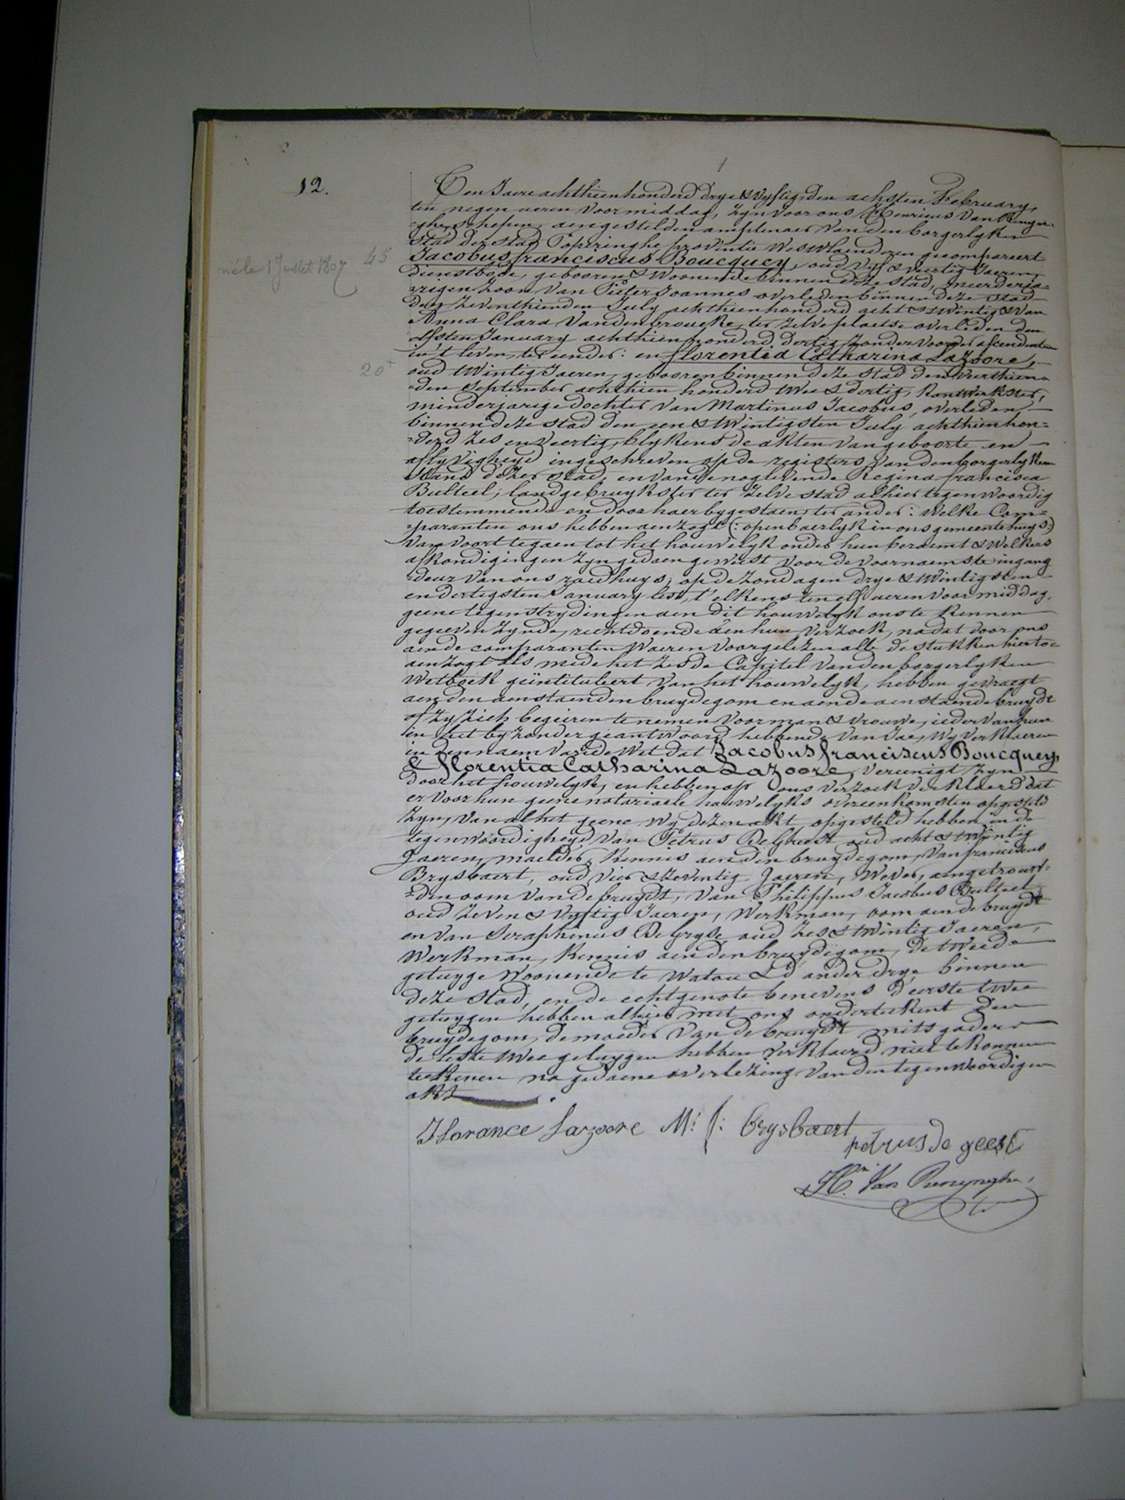 12.
Den Jaere achthien honderd drye & vyftig, den achsten February,
ten negen ueren voormiddag, zyn voor ons Henricus Van Renynghe
schepen aengestelden amptenaer van den borgerlyken
stand der stad Poperinghe provintie Westvlaenderen gecompareert
Jacobus franciscus Boucquey, oud vyf & veertig Jaeren 45
Dienstbode, geboren & woonende binnen deze stad, meerderja-
né le 1 Juillet 1807
rigen zoon van Pieter Joannes overleden binnen deze stad
den zeventhienden July achthien honderd acht & twintig & van
Anna Clara Vandenbrougke, ter zelve plaetse overleden den
elfsten January achthien honderd dertig, zonder voorder ascendenten
in 't leven, ter eender: en florentia Catharina Lazoore,
20
oud twintig Jaeren, geboren binnen deze stad den veerthien-
den September achthien honderd twee & dertig, kantwerkster,
minderjarige dochter van Martinus Jacobus, overleden
binnen deze stad den een & twintigsten July achthien hon-
derd zes en veertig, blykens de akten van geboorte en
aflyvigheyd ingeschreven op de registers van den borgerlyken
stand dezer stad, en van de nog levende Regina francisca
Bulteel, landgebruykster ter zelve stad alhier tegenwoordig
toestemmende en door haer bygestaen, ter ander: welke Com-
paranten ons hebben aenzogt (: openbaerlyk in ons gemeentehuys:)
van voort te gaen tot het houwelyk onder hun beraemt & welkers
afkondigingen zyn gedaen geweest voor de voornaemste ingang
deur van ons raedhuys, op de zondagen drye & twintigsten
en dertigsten January lest, t'elkens ten elf ueren voormiddag,
geene tegenstrydingen aen dit houwelyk ons te kennen
gegeven zynde, rechtdoende aen hun verzoek, nadat voor ons
aen de comparanten waeren voorgelezen alle de stukken hiertoe
aenzogt als mede het zesde Capitel van den borgerlyken
Wetboek geïntituleert van het houwelyk, hebben gevraegt
aen den aenstaenden bruydegom en aen de aenstaende bruydt
of zy zich begeiren te nemen voor man & vrouwe, ieder van hun
in het byzonder geantwoord hebbende van Jae, Wy verklaeren
in den naem van de Wet dat Jacobus franciscus Boucquey
& florentia Catharina Lazoore, vereenigt zyn
door het houwelyk, en hebben op ons verzoek verklaerd dat
er voor hun geene notariaele houwelyks overeenkomsten opgesteld
zyn, van al het geene Wy dezen akt opgesteld hebben in de
tegenwoordigheyd van Petrus De Geest oud acht & twintig
Jaeren, maelder, kennis aen den bruydegom, van franciscus
Brysbaert, oud vier & zeventig Jaeren, Wever, aengetrouw-
den oom van de bruydt, van Philippus Jacobus Bulteel
oud zeven & vyftig Jaeren, werkman, oom aen de bruydt
en van Seraphinus De Gryse, oud zes & twintig Jaeren,
werkman, kennis aen den bruydegom, de tweede
getuyge woonende te Watou & d'ander drye binnen
deze stad, en de echtgenote benevens d'eerste twee
getuygen hebben alhier met ons onderteekent den
bruydegom, de moeder van de bruydt mitsgaders
de leste twee getuygen hebben verklaerd niet te konnen
teekenen na gedaene overlezing van den tegenwoordigen
akt.
Florance Lazoore M: f: brysbaert
petrus de geest
Hen Van Renynghe